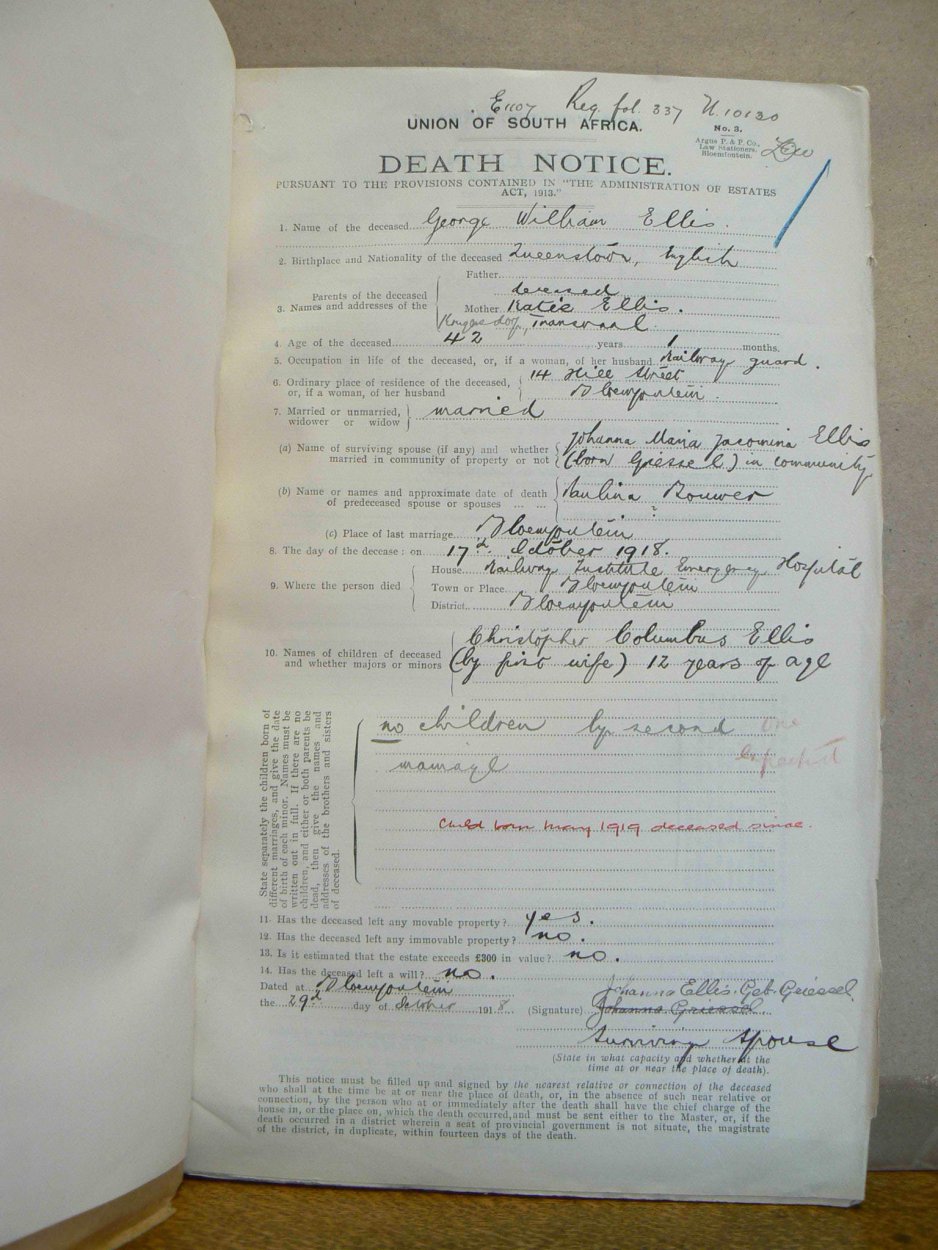 E1107 Reg. fol. 337 N. 10130
UNION OF SOUTH AFRICA.
No. 3.
Argus P. & P. Co.,
Law Stationers,
Bloemfontein.
DEATH NOTICE.
PURSUANT TO THE PROVISIONS CONTAINED IN "THE ADMINISTRATION OF ESTATES
ACT, 1913."
1. Name of the deceased George William Ellis.
2. Birthplace and Nationality of the deceased Queenstown, English
3. Names and addresses of the Parents of the deceased
Father
deceased
Mother Katie Ellis.
Krugersdorp, Transvaal
4. Age of the deceased 42 years 1 months.
5. Occupation in life of the deceased, or, if a woman, of her husband Railway guard.
6. Ordinary place of residence of the deceased, 14 Hill Street
or, if a woman, of her husband Bloemfontein.
7. Married or unmarried, married
widower or widow
(a) Name of surviving spouse (if any) and whether Johanna Maria Jacomina Ellis
married in community of property or not (born Griessel) in community
(b) Name or names and approximate date of death Paulina Bouwer
of predeceased spouse or spouses ... ... ?
(c) Place of last marriage Bloemfontein
8. The day of the decease: on 17th October 1918.
9. Where the person died
House Railway Institute Emergency Hospital
Town or Place Bloemfontein
District Bloemfontein
Christopher Columbus Ellis
10. Names of children of deceased
and whether majors or minors (by first wife) 12 years of age
State separately the children born of
different marriages, and give the date
of birth of each minor. Names must be
written out in full. If there are no
children, and either or both parents be
dead, then give the names and
addresses of the brothers and sisters
of deceased.
no children by second one
marriage expected
Child born May 1919 deceased since.
11. Has the deceased left any movable property? yes.
12. Has the deceased left any immovable property? no.
13. Is it estimated that the estate exceeds £300 in value? no.
14. Has the deceased left a will? no.
Dated at Bloemfontein
Johanna Ellis. Geb. Griessel.
the 29th day of October 1918 (Signature) Johanna Griessel
Surviving Spouse
(State in what capacity and whether at the
time at or near the place of death).
This notice must be filled up and signed by the nearest relative or connection of the deceased
who shall at the time be at or near the place of death, or, in the absence of such near relative or
connection, by the person who at or immediately after the death shall have the chief charge of the
house in, or the place on, which the death occurred, and must be sent either to the Master, or, if the
death occurred in a district wherein a seat of provincial government is not situate, the magistrate
of the district, in duplicate, within fourteen days of the death.